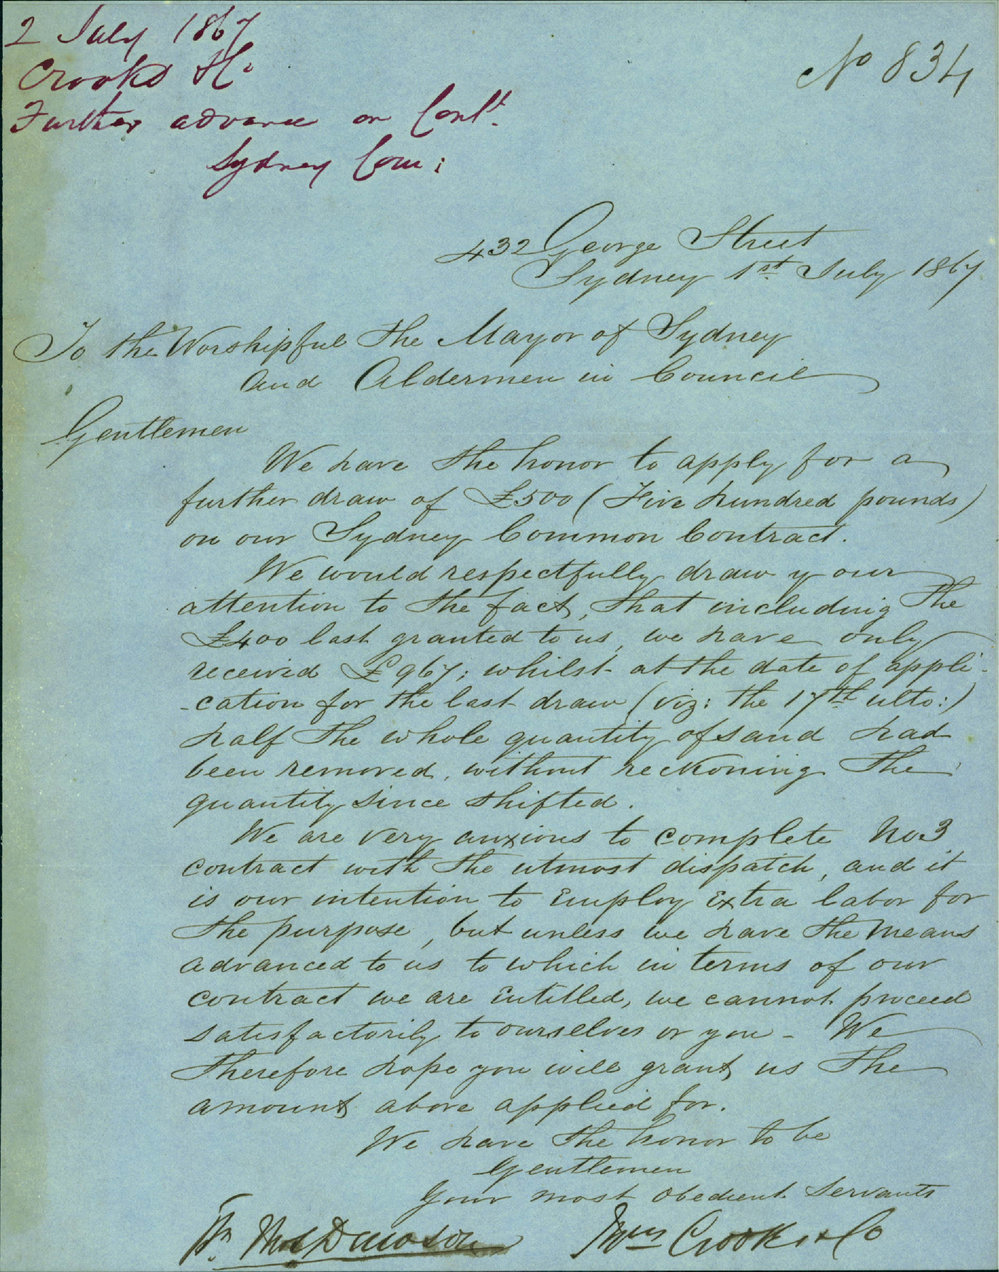 2 July 1867
Crooks H.
Further advance on Cont.
Sydney Com:
No 834
432 George Street
Sydney 1st July 1867
To the Worshipful the Mayor of Sydney
and Aldermen in Council
Gentlemen
We have the honor to apply for a
further draw of £500 (Five hundred pounds)
on our Sydney Common Contract.
We would respectfully draw your
attention to the fact, that including the
£400 last granted to us, we have only
received £967; whilst at the date of appli-
-cation for the last draw (viz: the 17th ulto:)
half the whole quantity of sand had
been removed, without reckoning the
quantity since shifted.
We are very anxious to complete No3
contract with the utmost dispatch, and it
is our intention to Employ Extra labor for
the purpose, but unless we have the means
advanced to us to which in terms of our
contract we are Entitled, we cannot proceed
satisfactorily to ourselves or you - We
therefore hope you will grant us the
amount above applied for.
We have the honor to be
Gentlemen
Your most obedient servants
Dawson
Crooks & Co